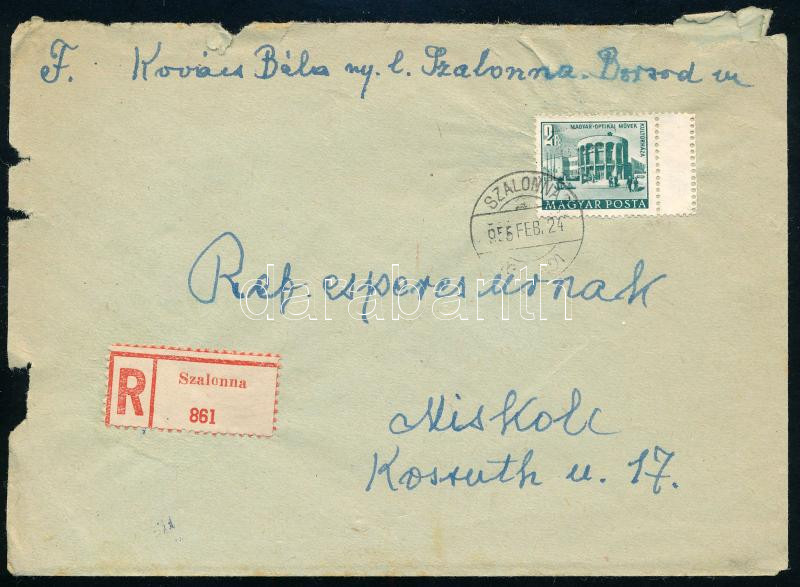 F. Kovács Béla ny. l. Szalonna. Borsod m
2 Ft
MAGYAR OPTIKAI MŰVEK
KULTÚRHÁZA
MAGYAR POSTA
SZALONNA
955 FEB. 24
Ref. esperes urnak
darabanth
R
Szalonna
861
Miskolc
Kossuth u. 17.